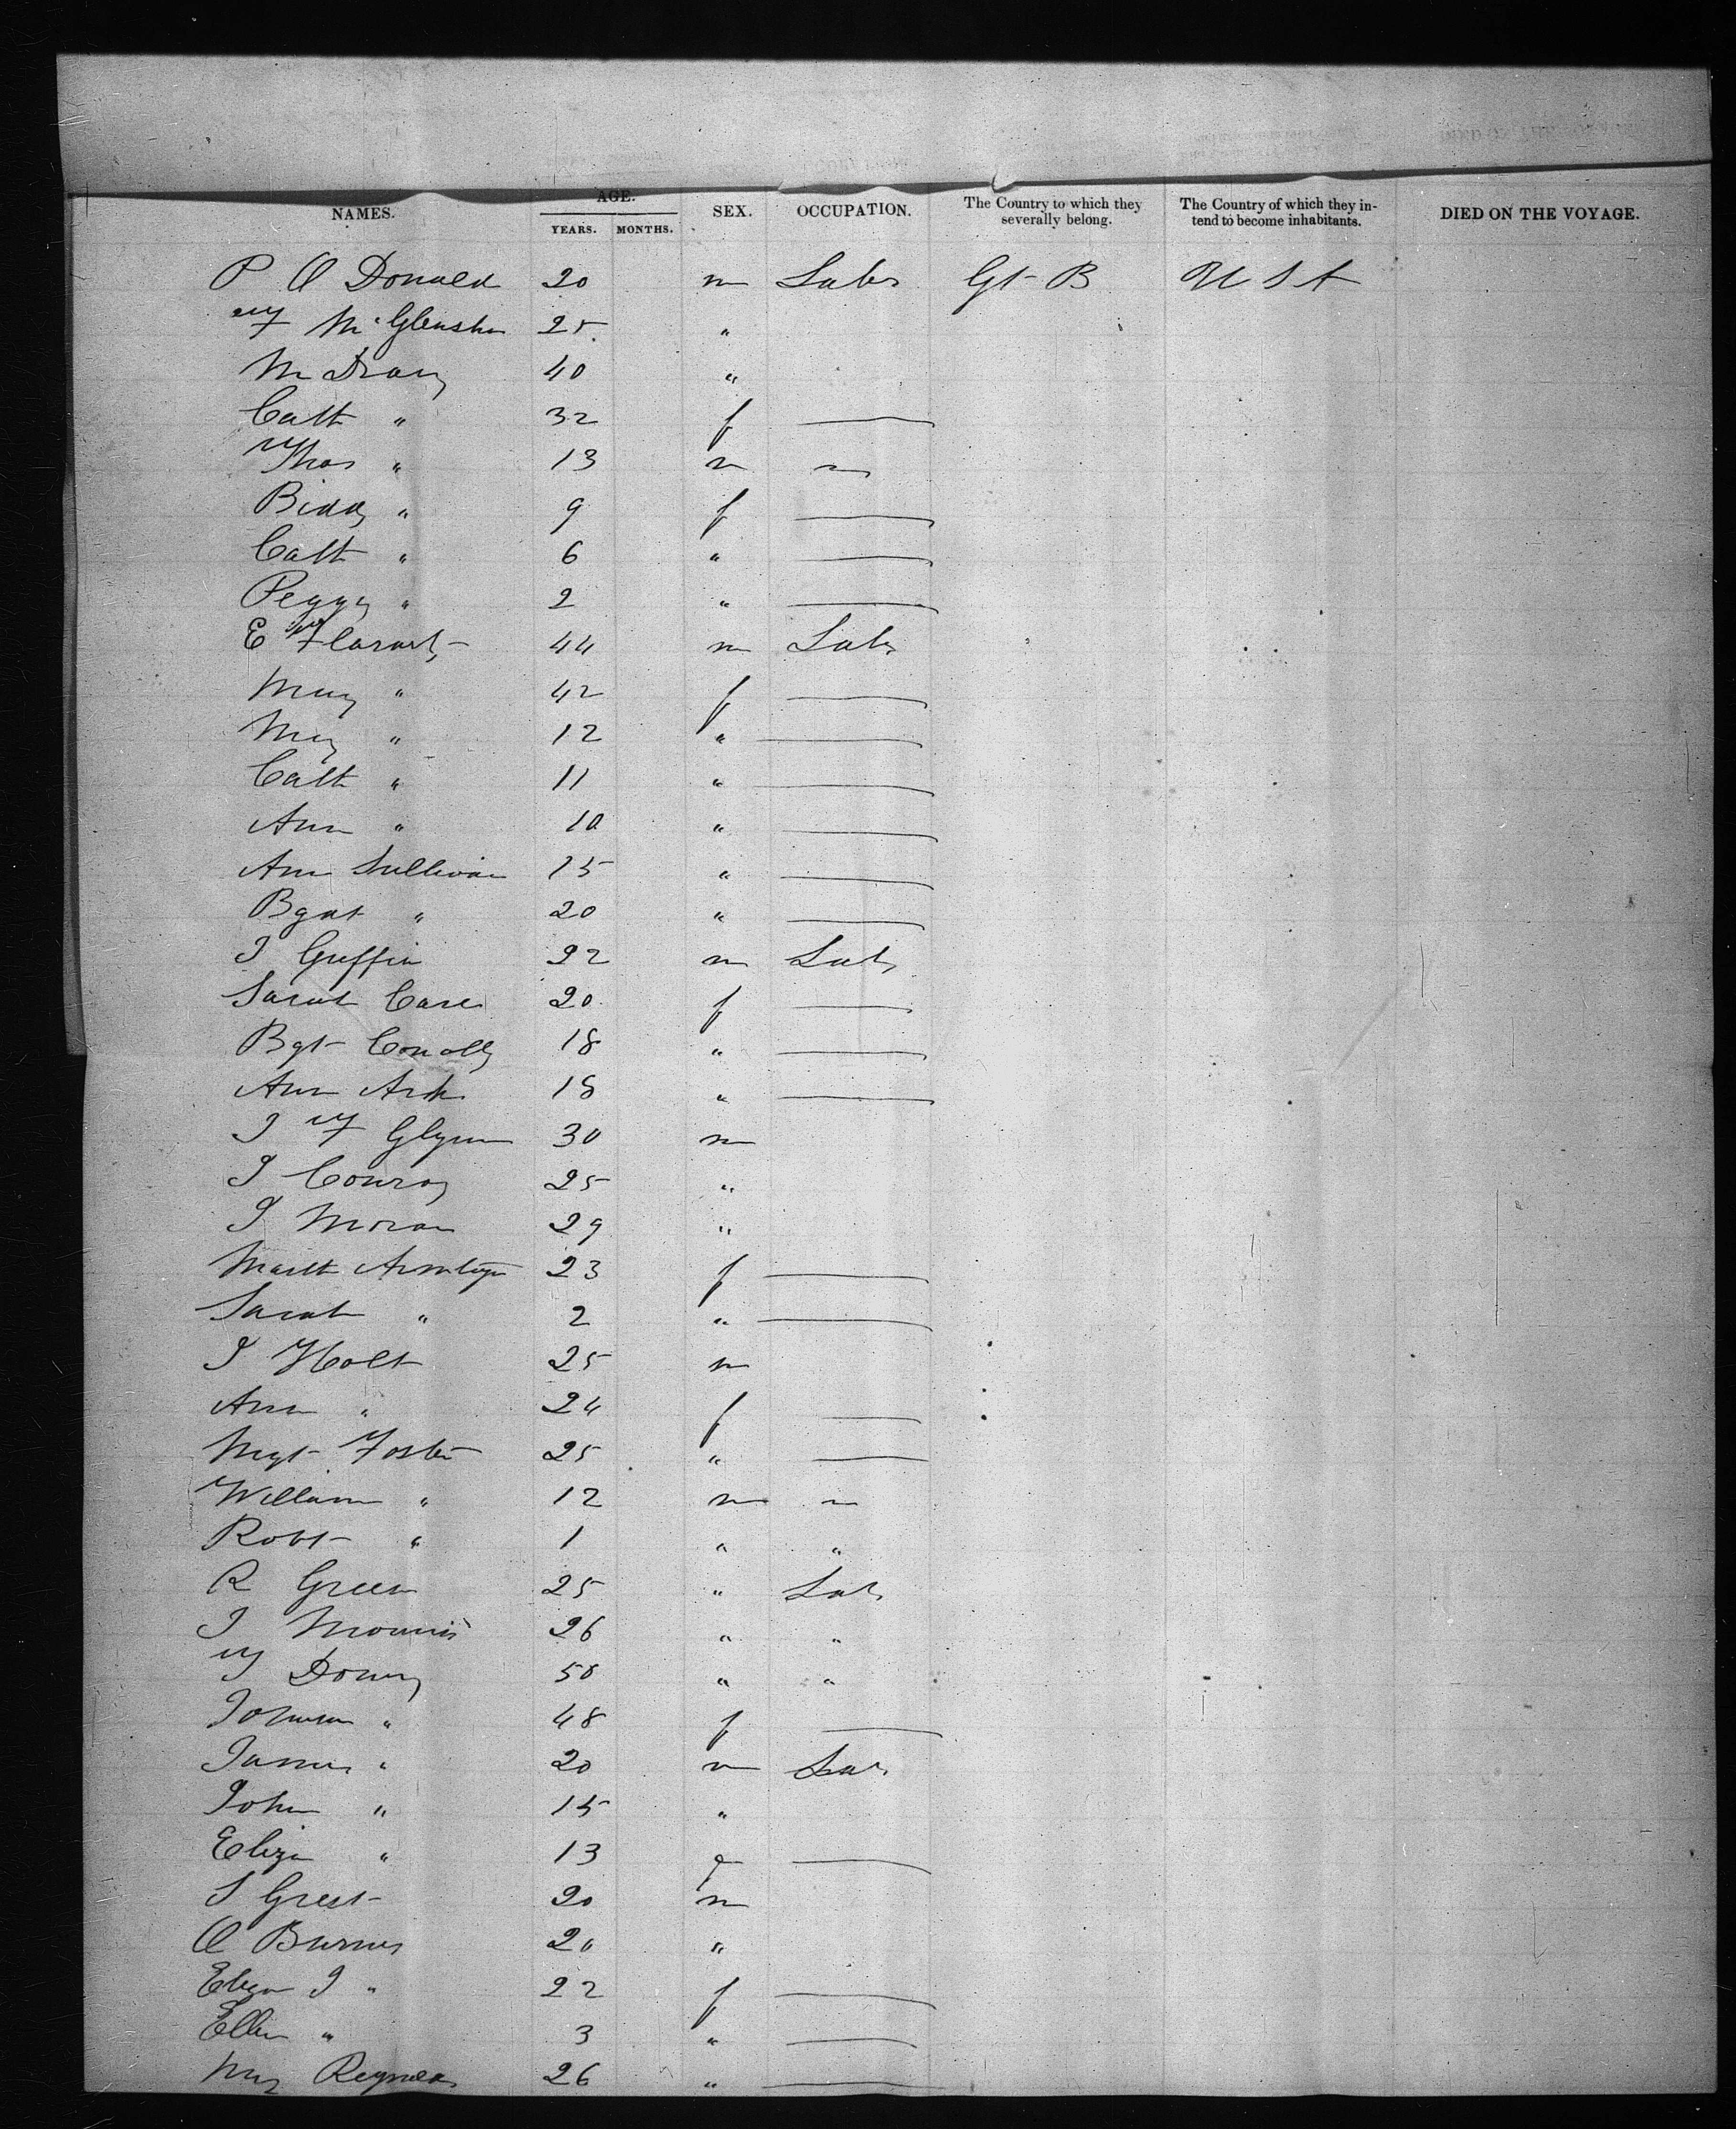 NAMES. AGE. YEARS. MONTHS. SEX. OCCUPATION. The Country to which they severally belong. The Country of which they intend to become inhabitants. DIED ON THE VOYAGE.
P O Donald 20 m Labr Gt B U S A
McGlenshn 25 "
M 40 "
Cath " 32 f
Thos " 13 m
Biddy " 9 f
Cath " 6 "
Peggy " 2 "
E 44 m Labr
Mary " 42 f
Mary " 12 "
Cath " 11 "
Ann " 10 "
Ann Sullivan 15 "
Bgat " 20 "
J Griffin 22 m Labr
Sarah 20 f
Bgt Conolly 18 "
Ann 18 "
J Glynn 30 m
J Conroy 25 "
J Moran 29 "
23 f
Sarah " 2 "
J Holt 25 m
Ann " 24 f
Mgt Foster 25 "
William " 12 m
Robt " 1 " "
R Green 25 " Labr
J 26 " "
50 " "
" 48 f
James " 20 m Labr
John " 15 "
Eliza " 13
S 20 m
O Burns 20 "
Eliza J " 22 f
Ellen " 3 "
Mary Reynolds 26 "